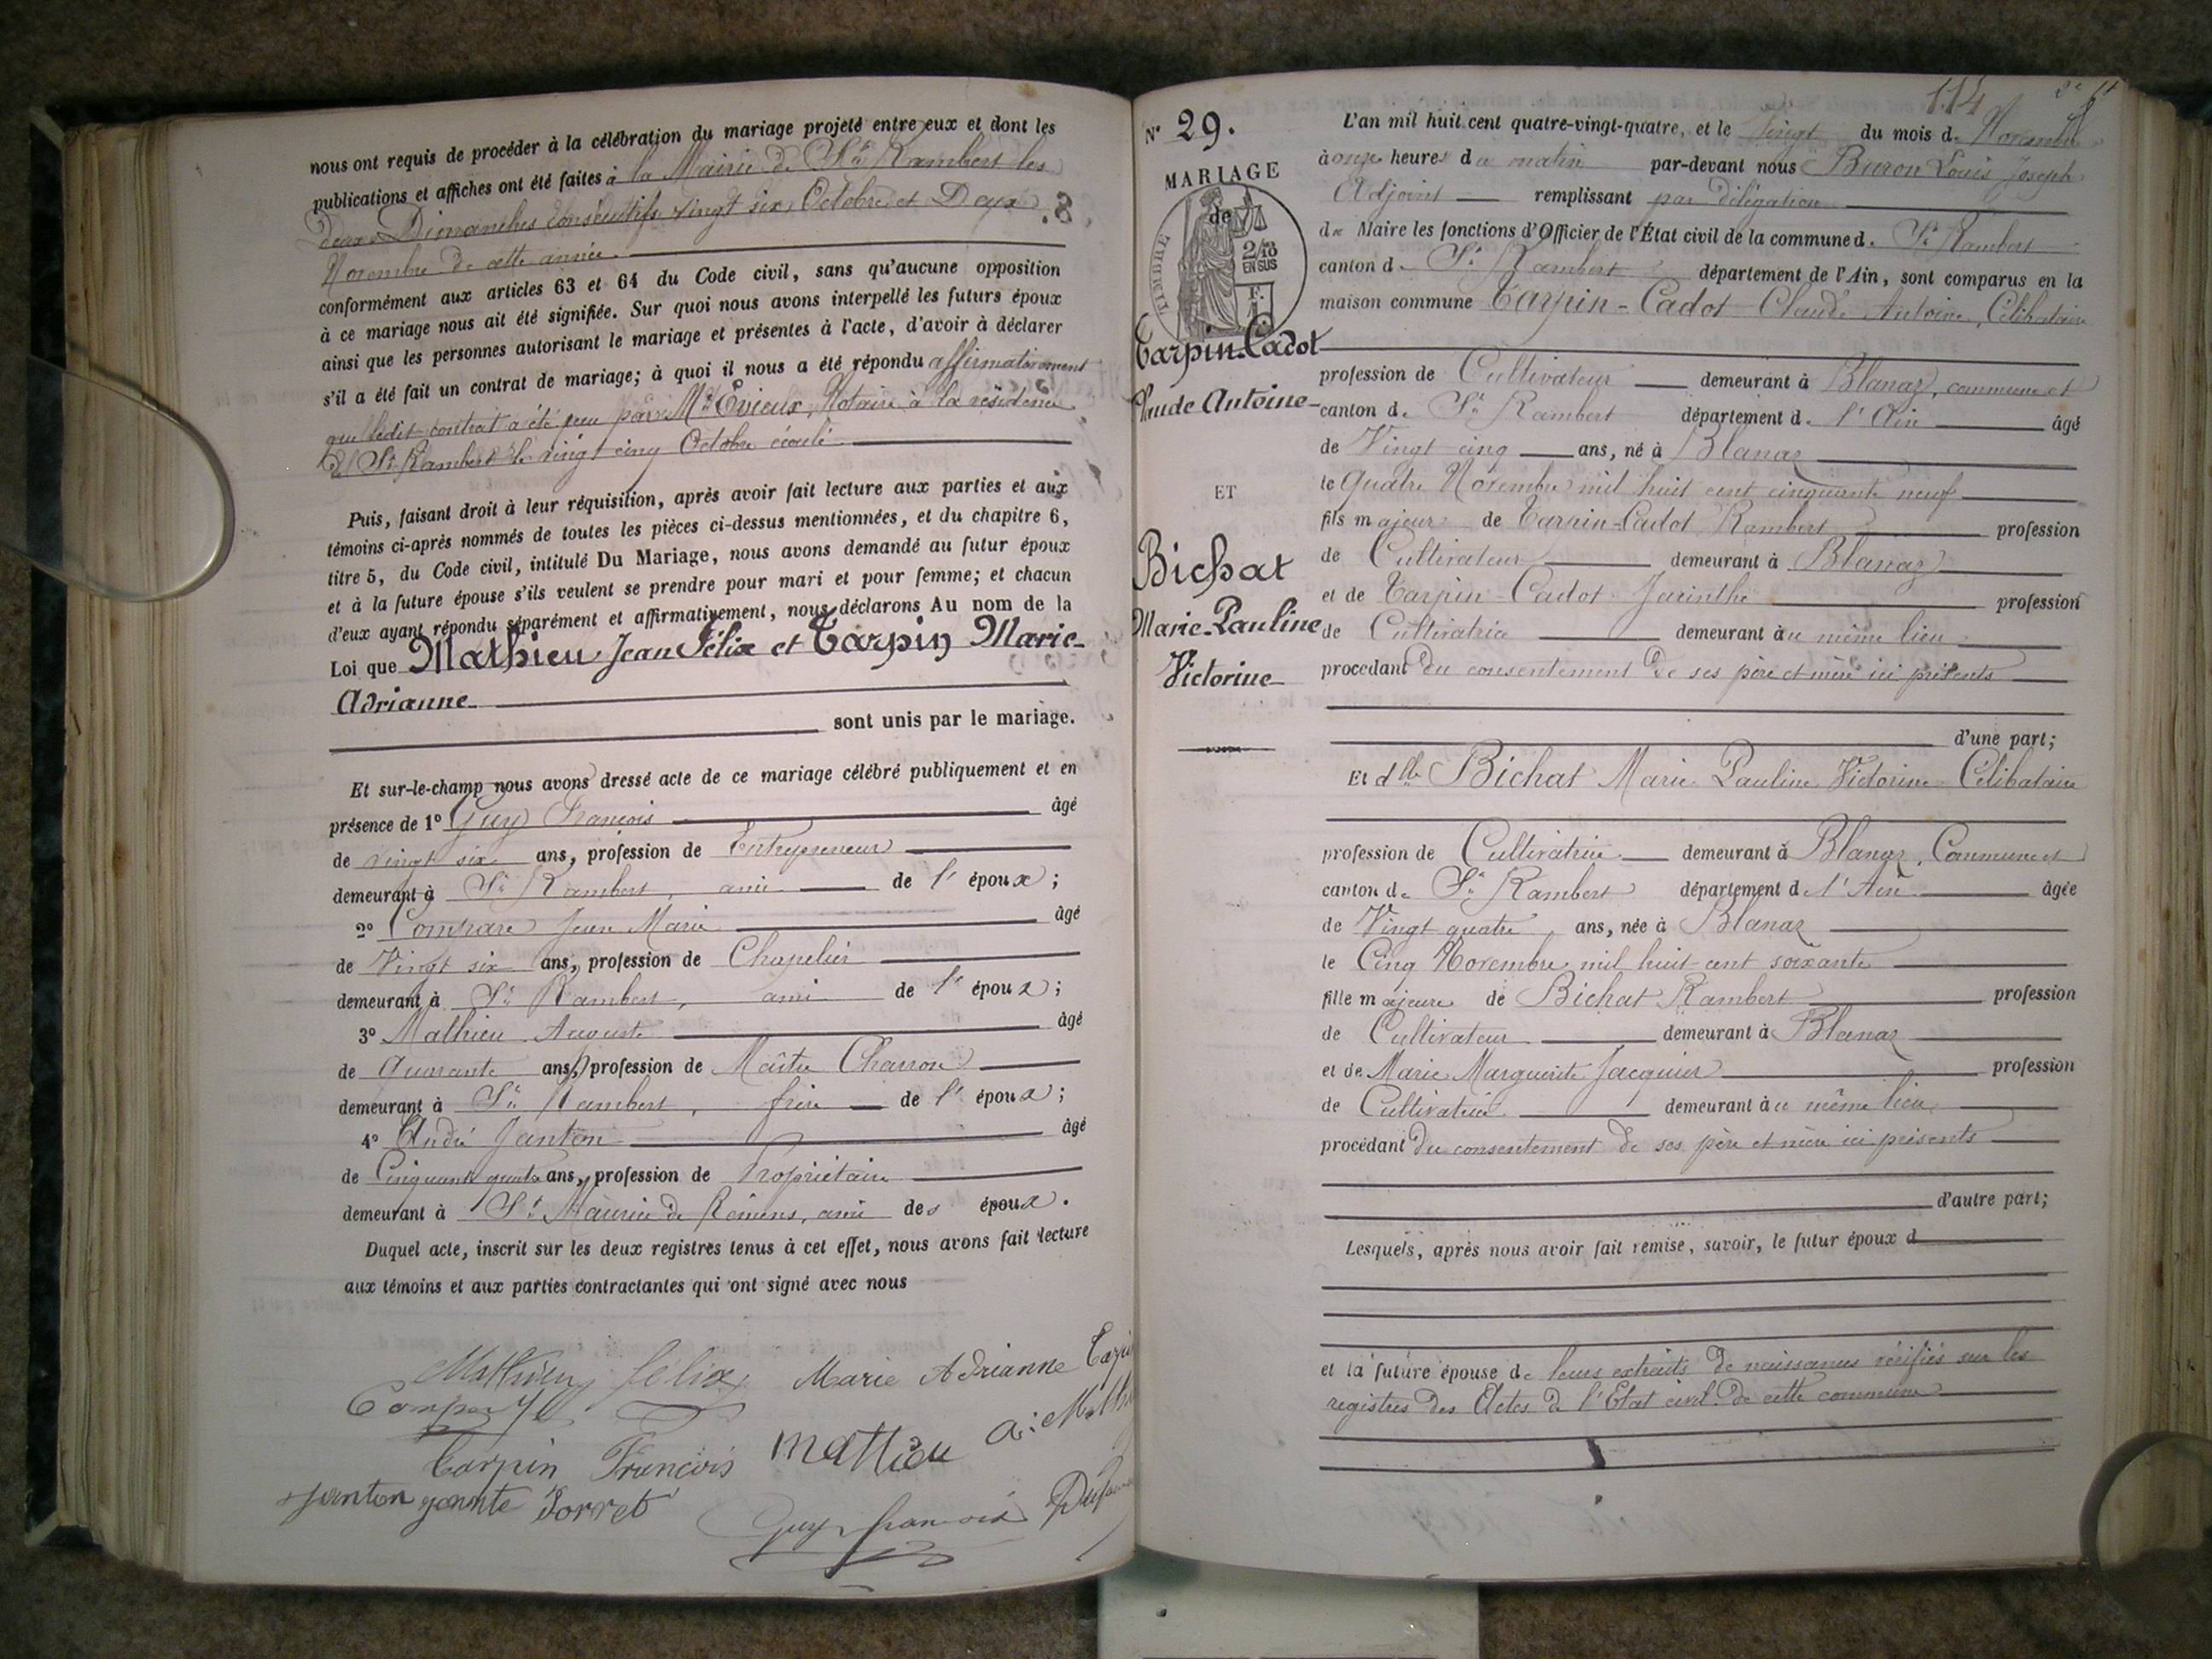 nous ont requis de procéder à la célébration du mariage projeté entre eux et dont les
publications et affiches ont été faites à la Mairie de St Rambert les
deux Dimanches consécutifs vingt six Octobre et Deux
Novembre de cette année
conformément aux articles 63 et 64 du Code civil, sans qu'aucune opposition
à ce mariage nous ait été signifiée. Sur quoi nous avons interpellé les futurs époux
ainsi que les personnes autorisant le mariage et présentes à l'acte, d'avoir à déclarer
s'il a été fait un contrat de mariage; à quoi il nous a été répondu affirmativement
que ledit contrat a été reçu par Me Evieux, Notaire à la résidence
de St Rambert le vingt cinq Octobre écoulé
Puis, faisant droit à leur réquisition, après avoir fait lecture aux parties et aux
témoins ci-après nommés de toutes les pièces ci-dessus mentionnées, et du chapitre 6,
titre 5, du Code civil, intitulé Du Mariage, nous avons demandé au futur époux
et à la future épouse s'ils veulent se prendre pour mari et pour femme; et chacun
d'eux ayant répondu séparément et affirmativement, nous déclarons Au nom de la
Loi que Mathieu Jean Félix et Tarpin Marie-
Adrianne
sont unis par le mariage.
Et sur-le-champ nous avons dressé acte de ce mariage célébré publiquement et en
présence de 1° Guy François âgé
de vingt six ans, profession de Entrepreneur
demeurant à St Rambert, ami de l'époux;
2° Compare Jean Marie âgé
de Vingt six ans, profession de Chapelier
demeurant à St Rambert, ami de l'époux;
3° Mathieu Auguste âgé
de Quarante ans, profession de Maître Charron
demeurant à St Rambert, frère de l'époux;
4° André Janton âgé
de Cinquante quatre ans, profession de Propriétaire
demeurant à St Maurice de Rémens, ami des époux.
Duquel acte, inscrit sur les deux registres tenus à cet effet, nous avons fait lecture
aux témoins et aux parties contractantes qui ont signé avec nous
Mathieu félix Marie Adrianne Tarpin
Tarpin François Mathieu
Janton
Guy françois
114
N° 29.
MARIAGE
de
TIMBRE
2/10
EN SUS
Tarpin-Cadot
Claude Antoine
ET
Bichat
Marie-Pauline
Victorine
L'an mil huit cent quatre-vingt-quatre, et le Vingt du mois de Novembre
à onze heures du matin par-devant nous Buron Louis Joseph
Adjoint remplissant par délégation
de Maire les fonctions d'Officier de l'État civil de la commune de St Rambert
canton de St Rambert département de l'Ain, sont comparus en la
maison commune Tarpin-Cadot Claude Antoine, Célibataire
profession de Cultivateur demeurant à Blanaz, commune et
canton de St Rambert département de l'Ain âgé
de Vingt cinq ans, né à Blanaz
le Quatre Novembre mil huit cent cinquante neuf
fils majeur de Tarpin-Cadot Rambert profession
de Cultivateur demeurant à Blanaz
et de Tarpin-Cadot Jacinthe profession
de Cultivatrice demeurant au même lieu
procédant du consentement de ses père et mère ici présents
d'une part;
Et dlle Bichat Marie Pauline Victorine Célibataire
profession de Cultivatrice demeurant à Blanaz, Commune et
canton de St Rambert département de l'Ain âgée
de Vingt quatre ans, née à Blanaz
le Cinq Novembre mil huit cent soixante
fille majeure de Bichat Rambert profession
de Cultivateur demeurant à Blanaz
et de Marie Marguerite Jacquier profession
de Cultivatrice demeurant au même lieu
procédant du consentement de ses père et mère ici présents
d'autre part;
Lesquels, après nous avoir fait remise, savoir, le futur époux d
et la future épouse de leurs extraits de naissances vérifiés sur les
registres des Actes de l'Etat civil de cette commune